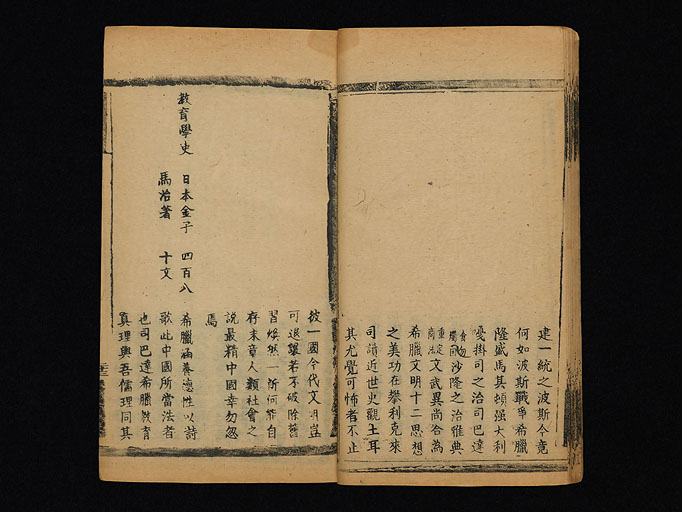 建一統之波斯今竟
何如波斯戰爭希臘
隆盛馬其頓强大利
憂掛司之治司巴達
沙隆之治雅典
重定商法文武異尚合為
希臘文明十二思想
之美功在攀利克來
司讀近世史觀土耳
其尤覺可怖者不止
彼一國今代文明豈
可退讓若不破除舊
習煥然一新何能自
存末章人類社會之
說最精中國幸勿忽
焉
教育學史 日本金子 四百八
馬治著 十文
希臘涵養德性以詩
歌此中國所當法者
也司巴達希臘教育
真理與吾儒理同其